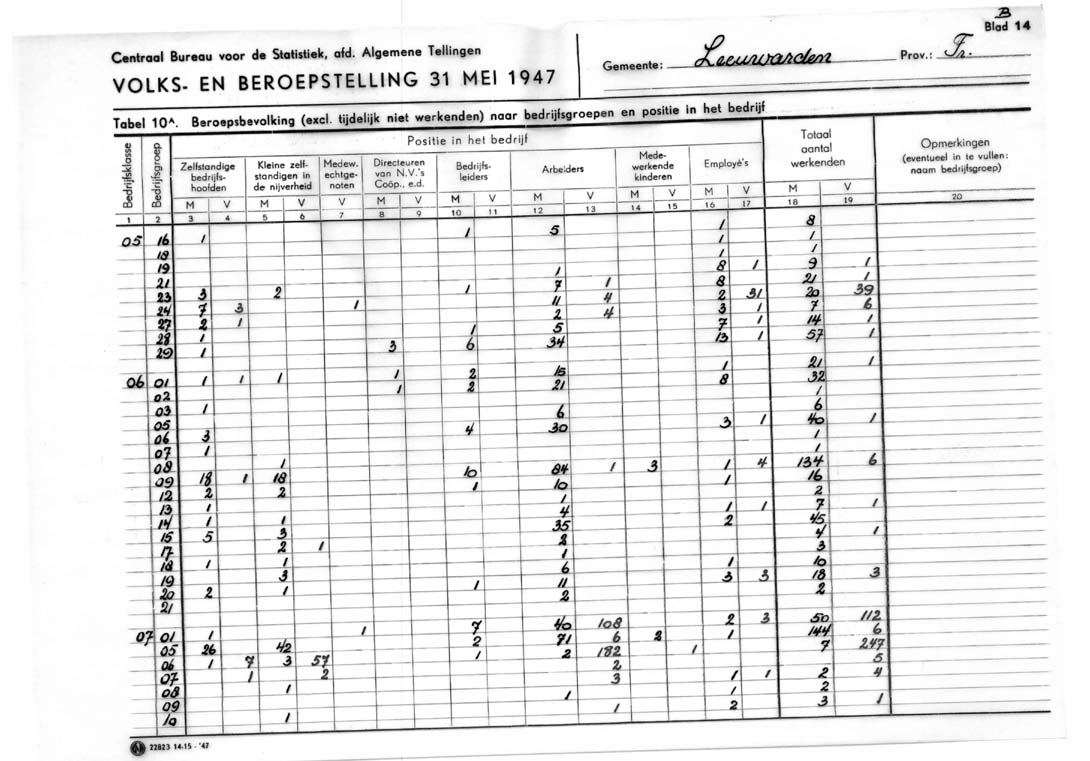 B
Blad 14
Centraal Bureau voor de Statistiek, afd. Algemene Tellingen
VOLKS- EN BEROEPSTELLING 31 MEI 1947
Gemeente: Leeuwarden Prov.: Fr.
Tabel 10^. Beroepsbevolking (excl. tijdelijk niet werkenden) naar bedrijfsgroepen en positie in het bedrijf
Bedrijfsklasse
Bedrijfsgroep
Positie in het bedrijf
Zelfstandige bedrijfs-hoofden
Kleine zelf-standigen in de nijverheid
Medew. echtge-noten
Directeuren van N.V.'s Coöp., e.d.
Bedrijfs-leiders
Arbeiders
Mede-werkende kinderen
Employé's
Totaal aantal werkenden
Opmerkingen (eventueel in te vullen: naam bedrijfsgroep)
M V M V V M V M V M V M V M V M V
1 2 3 4 5 6 7 8 9 10 11 12 13 14 15 16 17 18 19 20
05 16 1 1 5 1 8
18 1 1
19 1 1
21 1 8 1 9 1
23 3 2 1 7 1 8 21 1
24 7 3 1 11 4 2 31 20 39
27 2 1 2 4 3 1 7 6
28 1 1 5 7 1 14 1
29 1 3 6 34 13 1 57 1
06 01 1 1 1 1 2 15 1 21 1
02 1 2 21 8 32
03 1 1
05 6 6
06 3 4 30 3 1 40 1
07 1 1
08 1 1
09 18 1 18 10 84 1 3 1 4 134 6
12 2 2 1 10 1 16
13 1 1 2
14 1 1 4 1 1 7 1
15 5 3 35 2 45
17 2 1 2 4 1
18 1 1 1 3
19 3 6 1 10
20 2 1 1 11 3 3 18 3
21 2 2
07 01 1 1 7 40 108 2 3 50 112
05 26 42 2 71 6 2 1 144 6
06 1 7 3 57 1 2 182 1 7 247
07 1 2 2 5
08 1 3 1 1 2 4
09 1 1 2
10 1 1 2 3 1
22823 14-15 - '47